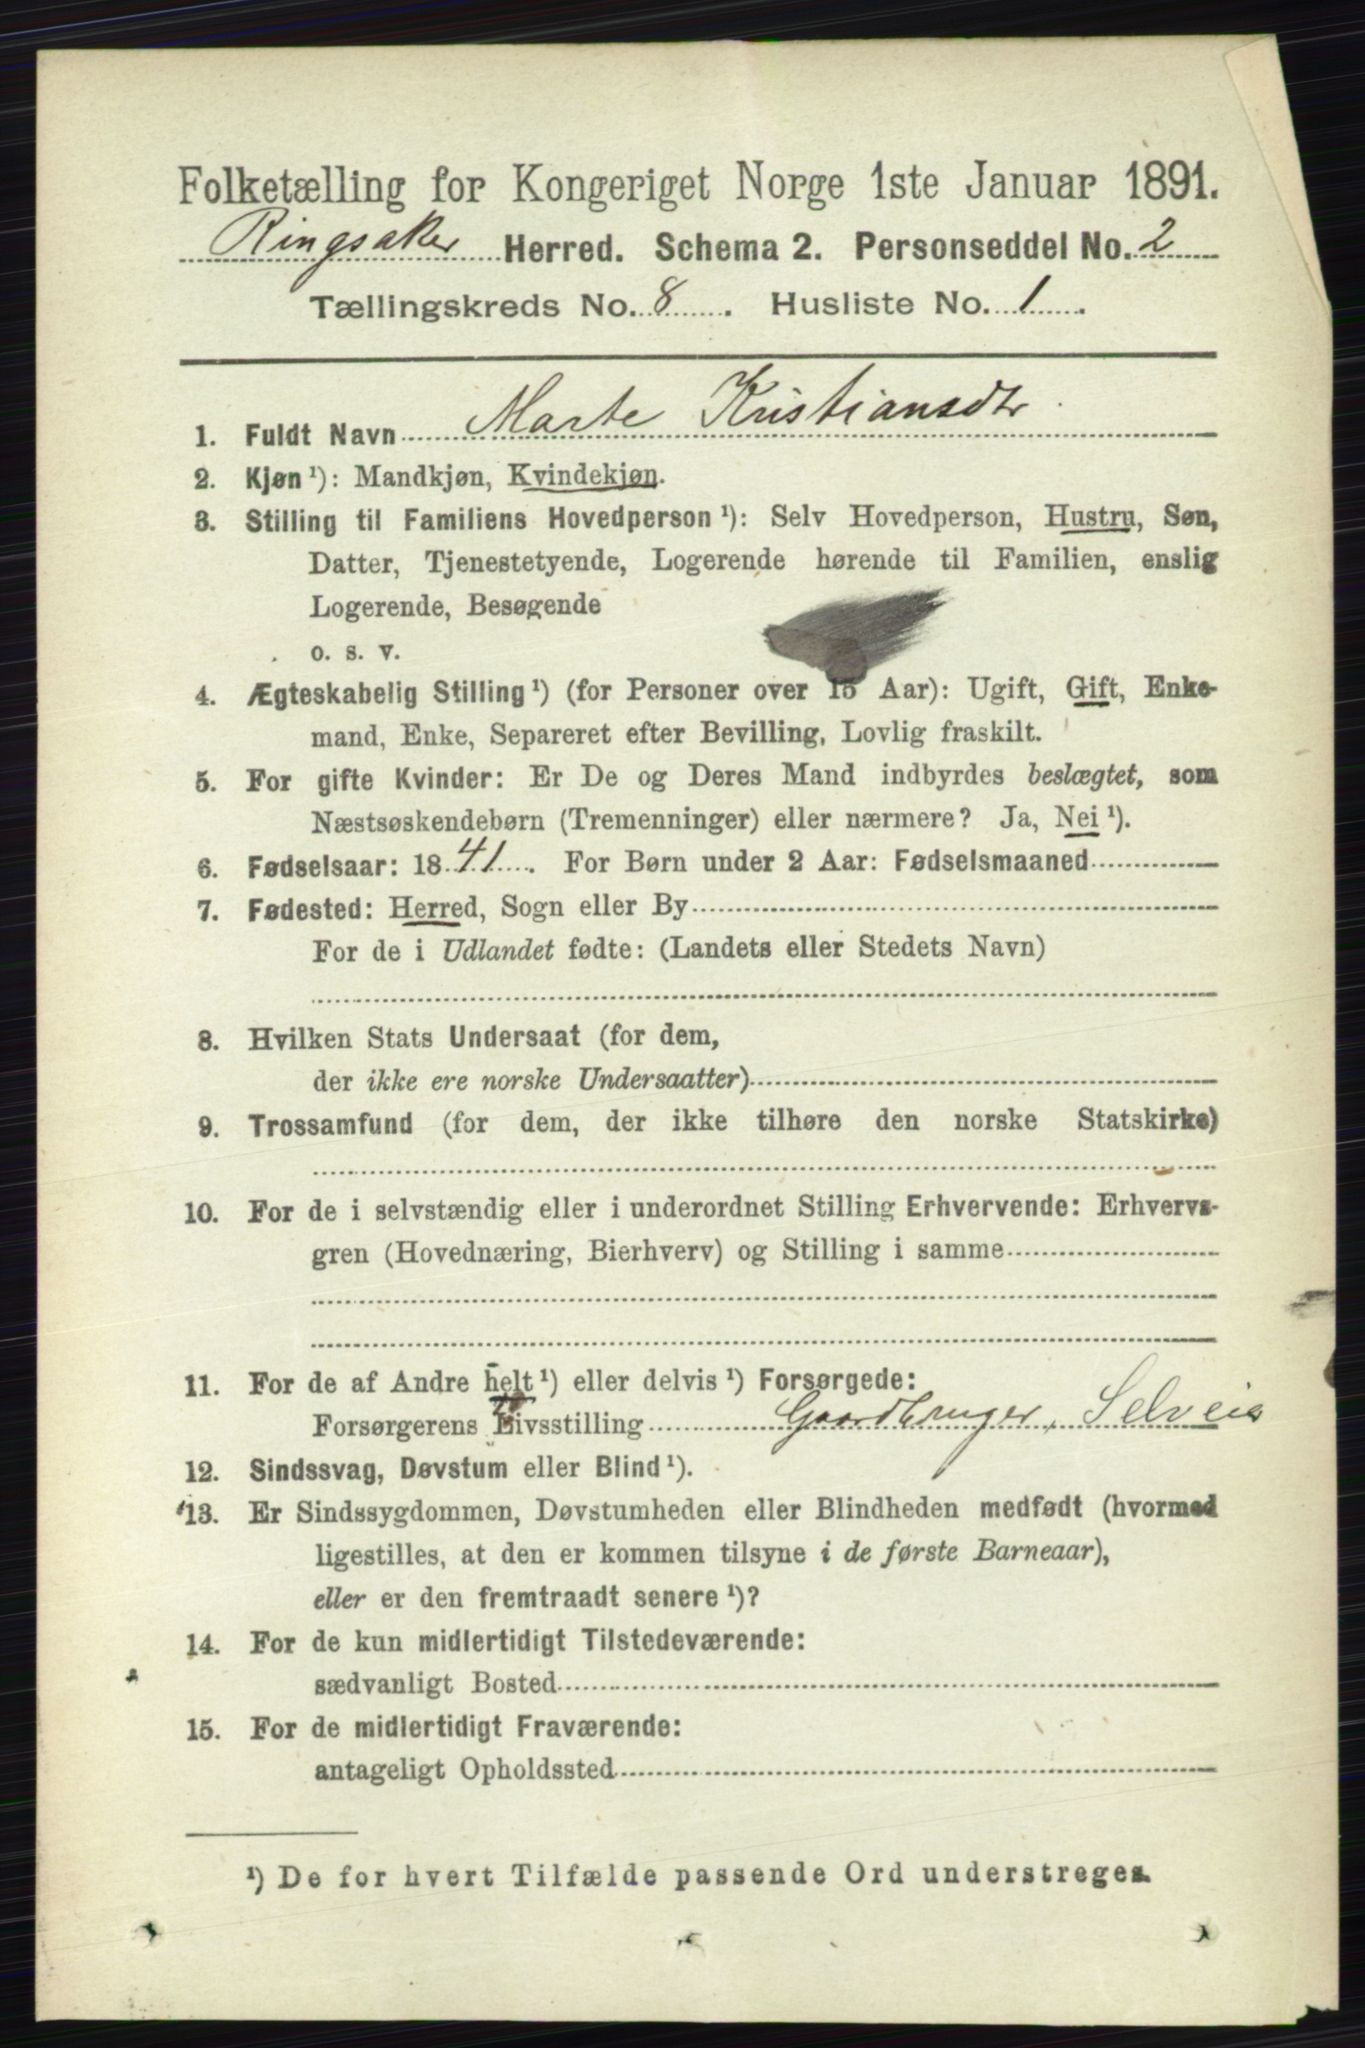 Folketælling for Kongeriget Norge 1ste Januar 1891.
Ringsaker Herred. Schema 2. Personseddel No. 2
Tællingskreds No. 8. Husliste No. 1.
1. Fuldt Navn Marte Kristiansdtr.
2. Kjøn ¹): Mandkjøn, Kvindekjøn.
3. Stilling til Familiens Hovedperson ¹): Selv Hovedperson, Hustru, Søn,
Datter, Tjenestetyende, Logerende hørende til Familien, enslig
Logerende, Besøgende
o. s. v.
4. Ægteskabelig Stilling ¹) (for Personer over 15 Aar): Ugift, Gift, Enke-
mand, Enke, Separeret efter Bevilling, Lovlig fraskilt.
5. For gifte Kvinder: Er De og Deres Mand indbyrdes beslægtet, som
Næstsøskendebørn (Tremenninger) eller nærmere? Ja, Nei ¹).
6. Fødselsaar: 1841. For Børn under 2 Aar: Fødselsmaaned
7. Fødested: Herred, Sogn eller By
For de i Udlandet fødte: (Landets eller Stedets Navn)
8. Hvilken Stats Undersaat (for dem,
der ikke ere norske Undersaatter)
9. Trossamfund (for dem, der ikke tilhøre den norske Statskirke)
10. For de i selvstændig eller i underordnet Stilling Erhvervende: Erhvervs-
gren (Hovednæring, Bierhverv) og Stilling i samme
11. For de af Andre helt ¹) eller delvis ¹) Forsørgede:
Forsørgerens Livsstilling Gaardbruger, Selveier
12. Sindssvag, Døvstum eller Blind ¹).
13. Er Sindssygdommen, Døvstumheden eller Blindheden medfødt (hvormed
ligestilles, at den er kommen tilsyne i de første Barneaar),
eller er den fremtraadt senere ¹)?
14. For de kun midlertidigt Tilstedeværende:
sædvanligt Bosted
15. For de midlertidigt Fraværende:
antageligt Opholdssted
¹) De for hvert Tilfælde passende Ord understreges.